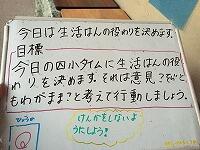 今日は生活はんの役わりを決めます。
目標
今日の四小タイムに生活はんの役
わりを決めます。それは意見?それ
ともわがまま?と考えて行動しましょう。
けんかをしないよ
うにしよう!